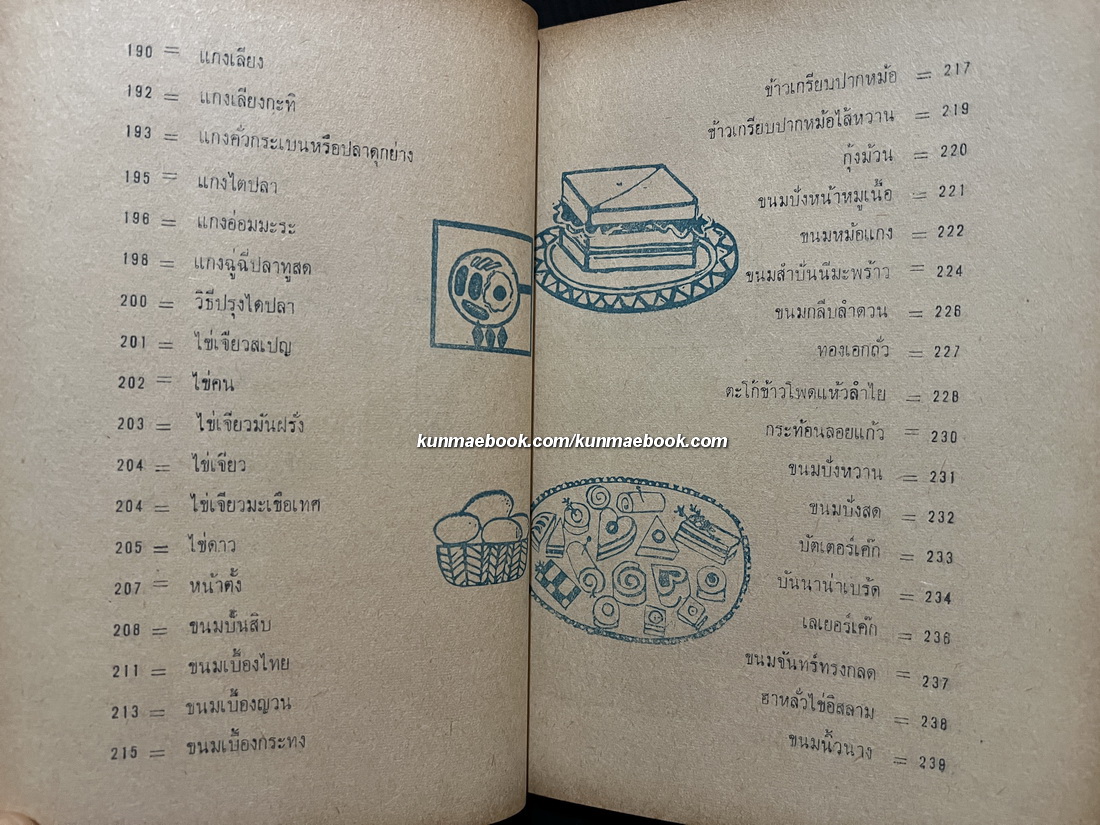 190 = แกงเลียง
192 = แกงเลียงกะทิ
193 = แกงคั่วกระเบนหรือปลาดุกย่าง
195 = แกงไตปลา
196 = แกงอ่อมมะระ
198 = แกงฉู่ฉี่ปลาทูสด
200 = วิธีปรุงไตปลา
201 = ไข่เจียวสเปญ
202 = ไข่คน
203 = ไข่เจียวมันฝรั่ง
204 = ไข่เจียว
204 = ไข่เจียวมะเขือเทศ
205 = ไข่ดาว
207 = หน้าตั้ง
208 = ขนมปั้นสิบ
211 = ขนมเบื้องไทย
213 = ขนมเบื้องญวน
215 = ขนมเบื้องกระทง
ข้าวเกรียบปากหม้อ = 217
ข้าวเกรียบปากหม้อไส้หวาน = 219
กุ้งม้วน = 220
ขนมปังหน้าหมูเนื้อ = 221
ขนมหม้อแกง = 222
ขนมสำปันนีมะพร้าว = 224
ขนมกลีบลำดวน = 226
ทองเอกถั่ว = 227
ตะโก้ข้าวโพดแห้วลำไย = 228
กระท้อนลอยแก้ว = 230
ขนมปังหวาน = 231
ขนมปังสด = 232
บัตเตอร์เค๊ก = 233
บันนาน่าเบรัด = 234
เลเยอร์เค๊ก = 236
ขนมจันทร์ทรงกลด = 237
ฮาหลั่วไข่อิสลาม = 238
ขนมนิ้วนาง = 239
kunmaebook.com/kunmaebook.com